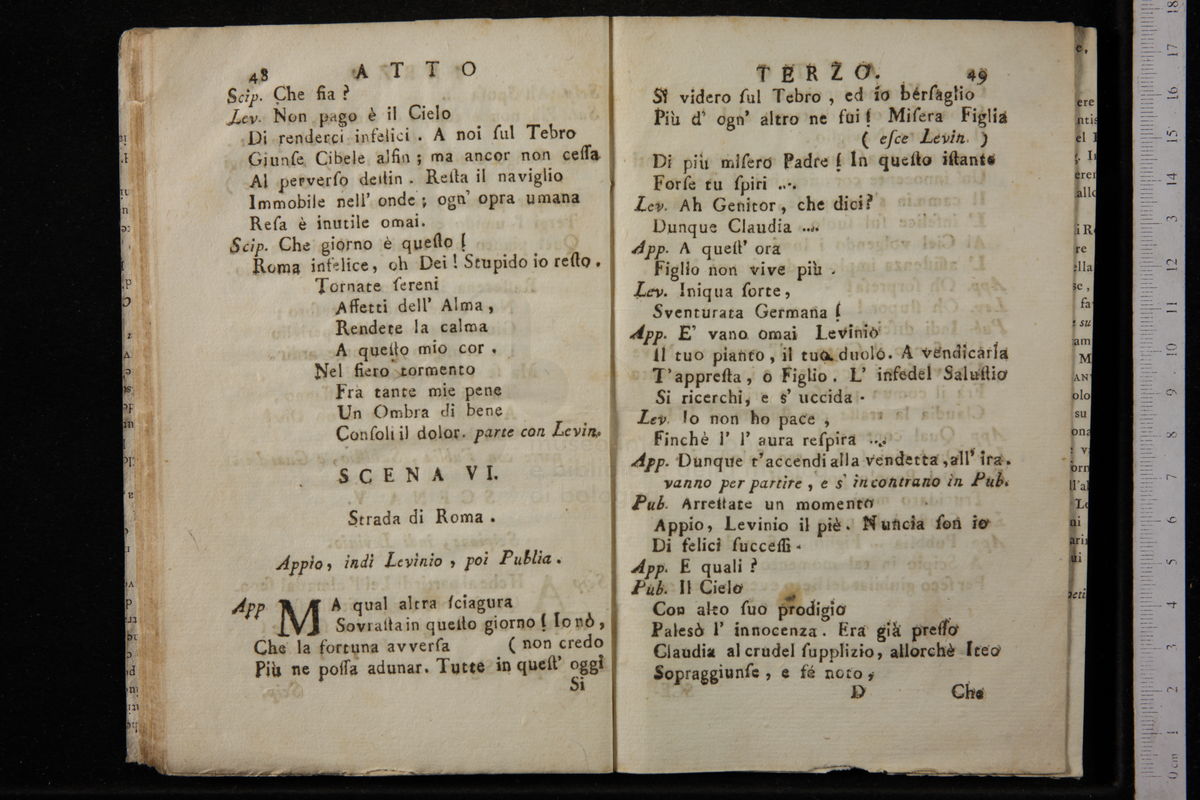 48 ATTO
Scip. Che fia ?
Lev. Non pago è il Cielo
Di renderci infelici . A noi ſul Tebro
Giunſe Cibele alfin ; ma ancor non ceſſa
Al perverſo deſtin . Reſta il naviglio
Immobile nell' onde ; ogn' opra umana
Reſa è inutile omai.
Scip. Che giorno è queſto !
Roma infelice, oh Dei ! Stupido io reſto .
Tornate ſereni
Affetti dell' Alma ,
Rendete la calma
A queſto mio cor .
Nel fiero tormento
Fra tante mie pene
Un Ombra di bene
Conſoli il dolor. parte con Levin.
SCENA VI.
Strada di Roma .
Appio, indi Levinio , poi Publia .
App MA qual altra ſciagura
Sovraſta in queſto giorno ! Io nò ,
Che la fortuna avverſa ( non credo
Più ne poſſa adunar. Tutte in queſt' oggi
Si
TERZO. 49
Si videro ſul Tebro , ed io berſaglio
Più d' ogn' altro ne fui ! Miſera Figlia
( eſce Levin. )
Di più miſero Padre ! In queſto iſtante
Forſe tu ſpiri ...
Lev. Ah Genitor, che dici ?
Dunque Claudia ....
App. A queſt' ora
Figlio non vive più .
Lev. Iniqua ſorte,
Sventurata Germana !
App. E' vano omai Levinio
Il tuo pianto , il tuo duolo. A vendicarla
T'appreſta, o Figlio . L' infedel Saluſtio
Si ricerchi, e s' uccida .
Lev. Io non ho pace ,
Finchè l' l' aura reſpira ...
App. Dunque t'accendi alla vendetta , all' ira.
vanno per partire , e s' incontrano in Pub.
Pub. Arreſtate un momento
Appio, Levinio il piè. Nuncia ſon io
Di felici ſucceſſi .
App. E quali ?
Pub. Il Cielo
Con alto ſuo prodigio
Palesò l' innocenza . Era già preſſo
Claudia al crudel ſupplizio, allorchè Iteo
Sopraggiunſe , e fé noto ,
D Che